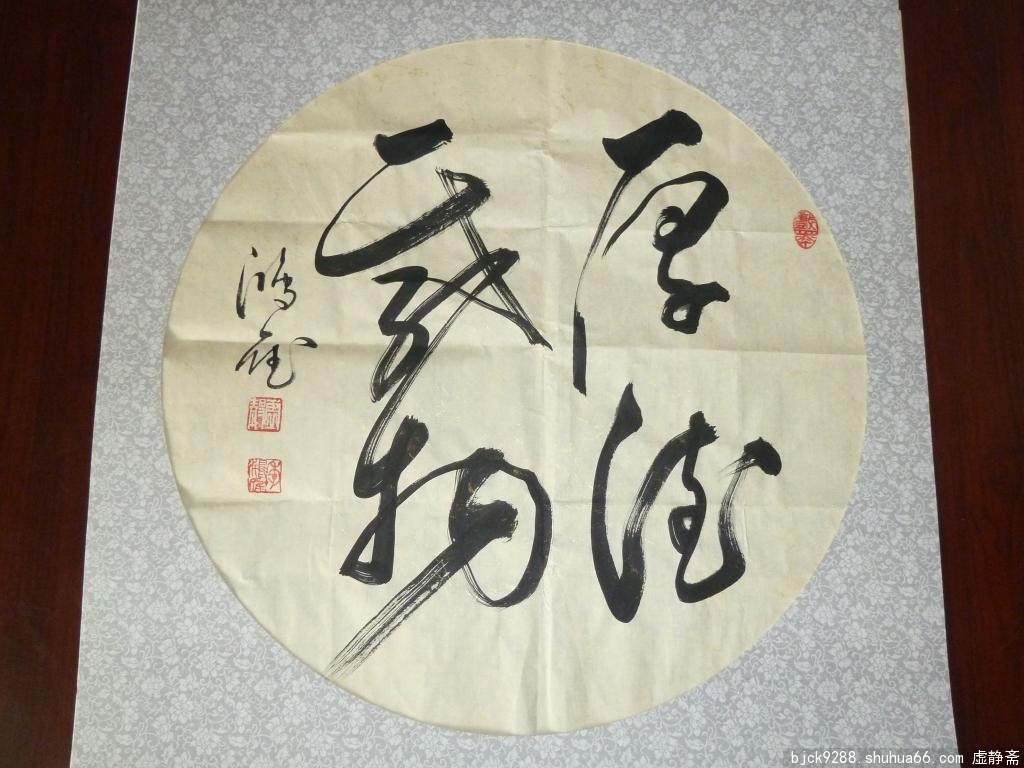 厚德
载物
鸿雁
bjck9288.shuhua66.com 虚静斋